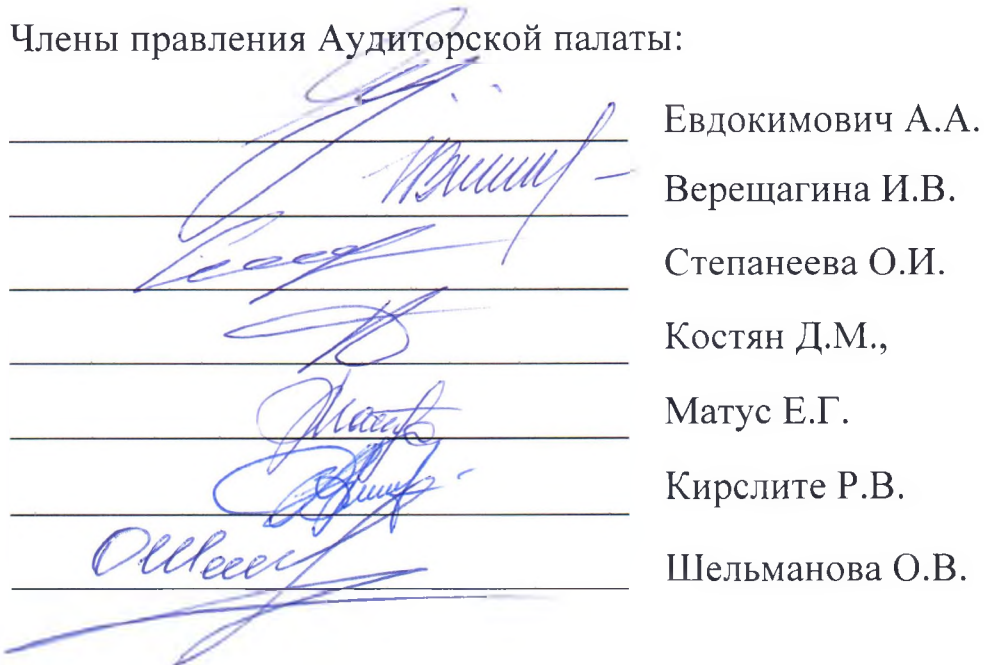 Члены правления Аудиторской палаты:
Евдокимович А.А.
Верещагина И.В.
Степанеева О.И.
Костян Д.М.,
Матус Е.Г.
Кирслите Р.В.
Шельманова О.В.